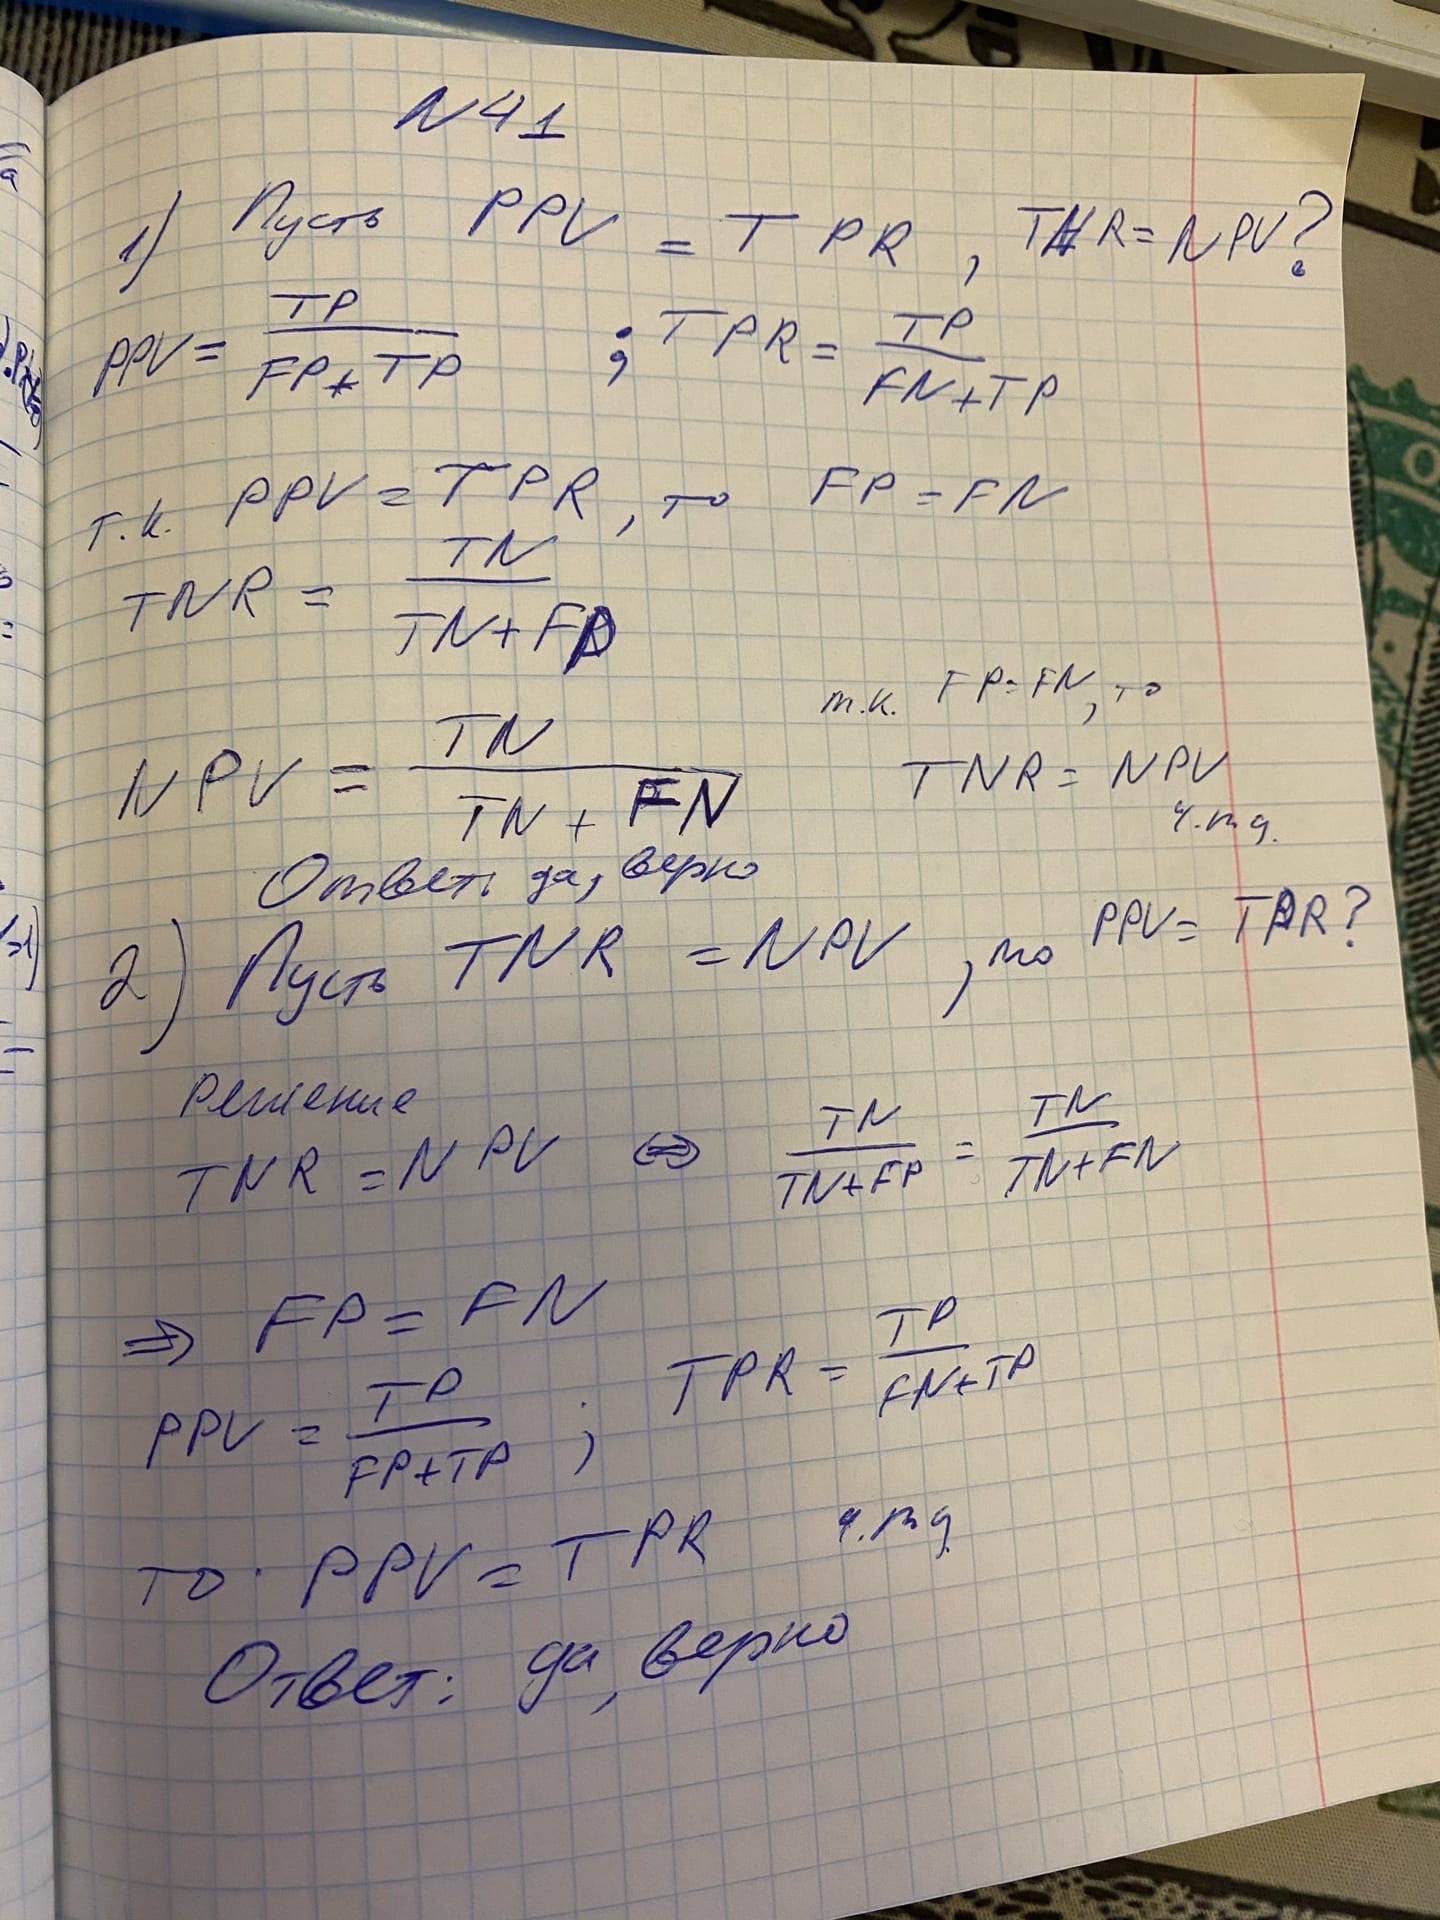 N41
1) Пусть PPV = TPR, TNR = NPV?
PPV = TP / FP + TP ; TPR = TP / FN + TP
т.к. PPV = TPR, то FP = FN
TNR = TN / TN + FP
т.к. FP = FN, то
NPV = TN / TN + FN
TNR = NPV
ч.тд.
Ответ: да, верно
2) Пусть TNR = NPV, то PPV = TPR?
Решение
TNR = NPV ⇔ TN / TN + FP = TN / TN + FN
⇒ FP = FN
PPV = TP / FP + TP ; TPR = TP / FN + TP
то PPV = TPR ч.тд
Ответ: да, верно